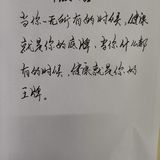 当你一无所有的时候，健康
就是你的底牌，当你什么都
有的时候，健康就是你的
王牌。